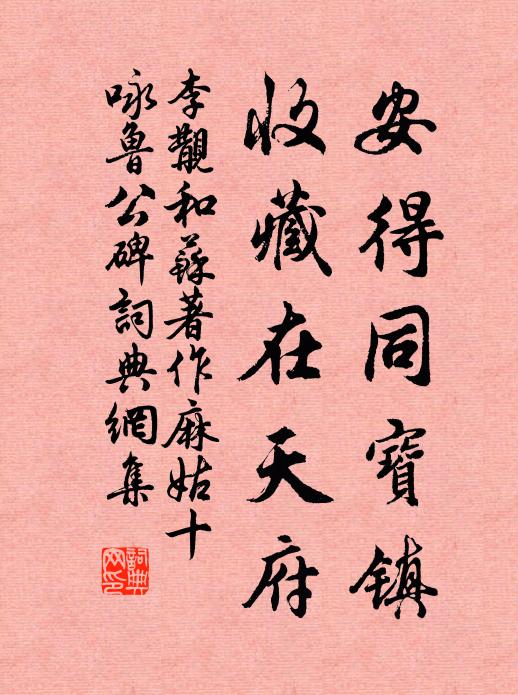 安得同寶鎮
收藏在天府
李覯和蘇著作麻姑十
咏魯公碑詞典網集
詞典网印